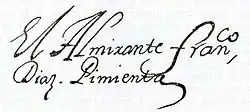 El Almirante fran,co
Diaz. Pimienta